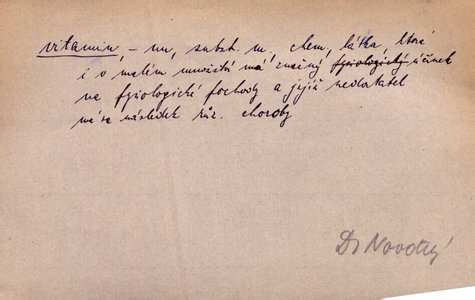 vitamin, -nu, subst. m., chem., látka, která
i v malém množství má značný fysiologický účinek
na fysiologické pochody a jejíž nedostatek
má za následek růz. choroby
Dr Novotný